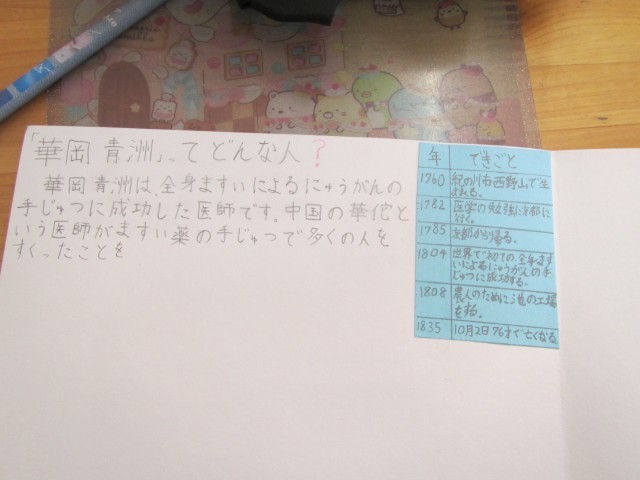 「華岡 青洲」ってどんな人?
華岡 青洲は、全身ますいによるにゅうがんの
手じゅつに成功した医師です。中国の華佗と
いう医師がますい薬の手じゅつで多くの人を
すくったことを
年 できごと
1760 紀の川市西野山で生
まれる。
1782 医学の勉強に京都に
行く。
1785 京都から帰る。
1804 世界で初めての、全身ます
いによるにゅうがんの手
じゅつに成功する。
1808 農人のために の工場
を
1835 10月2日76才で亡くなる